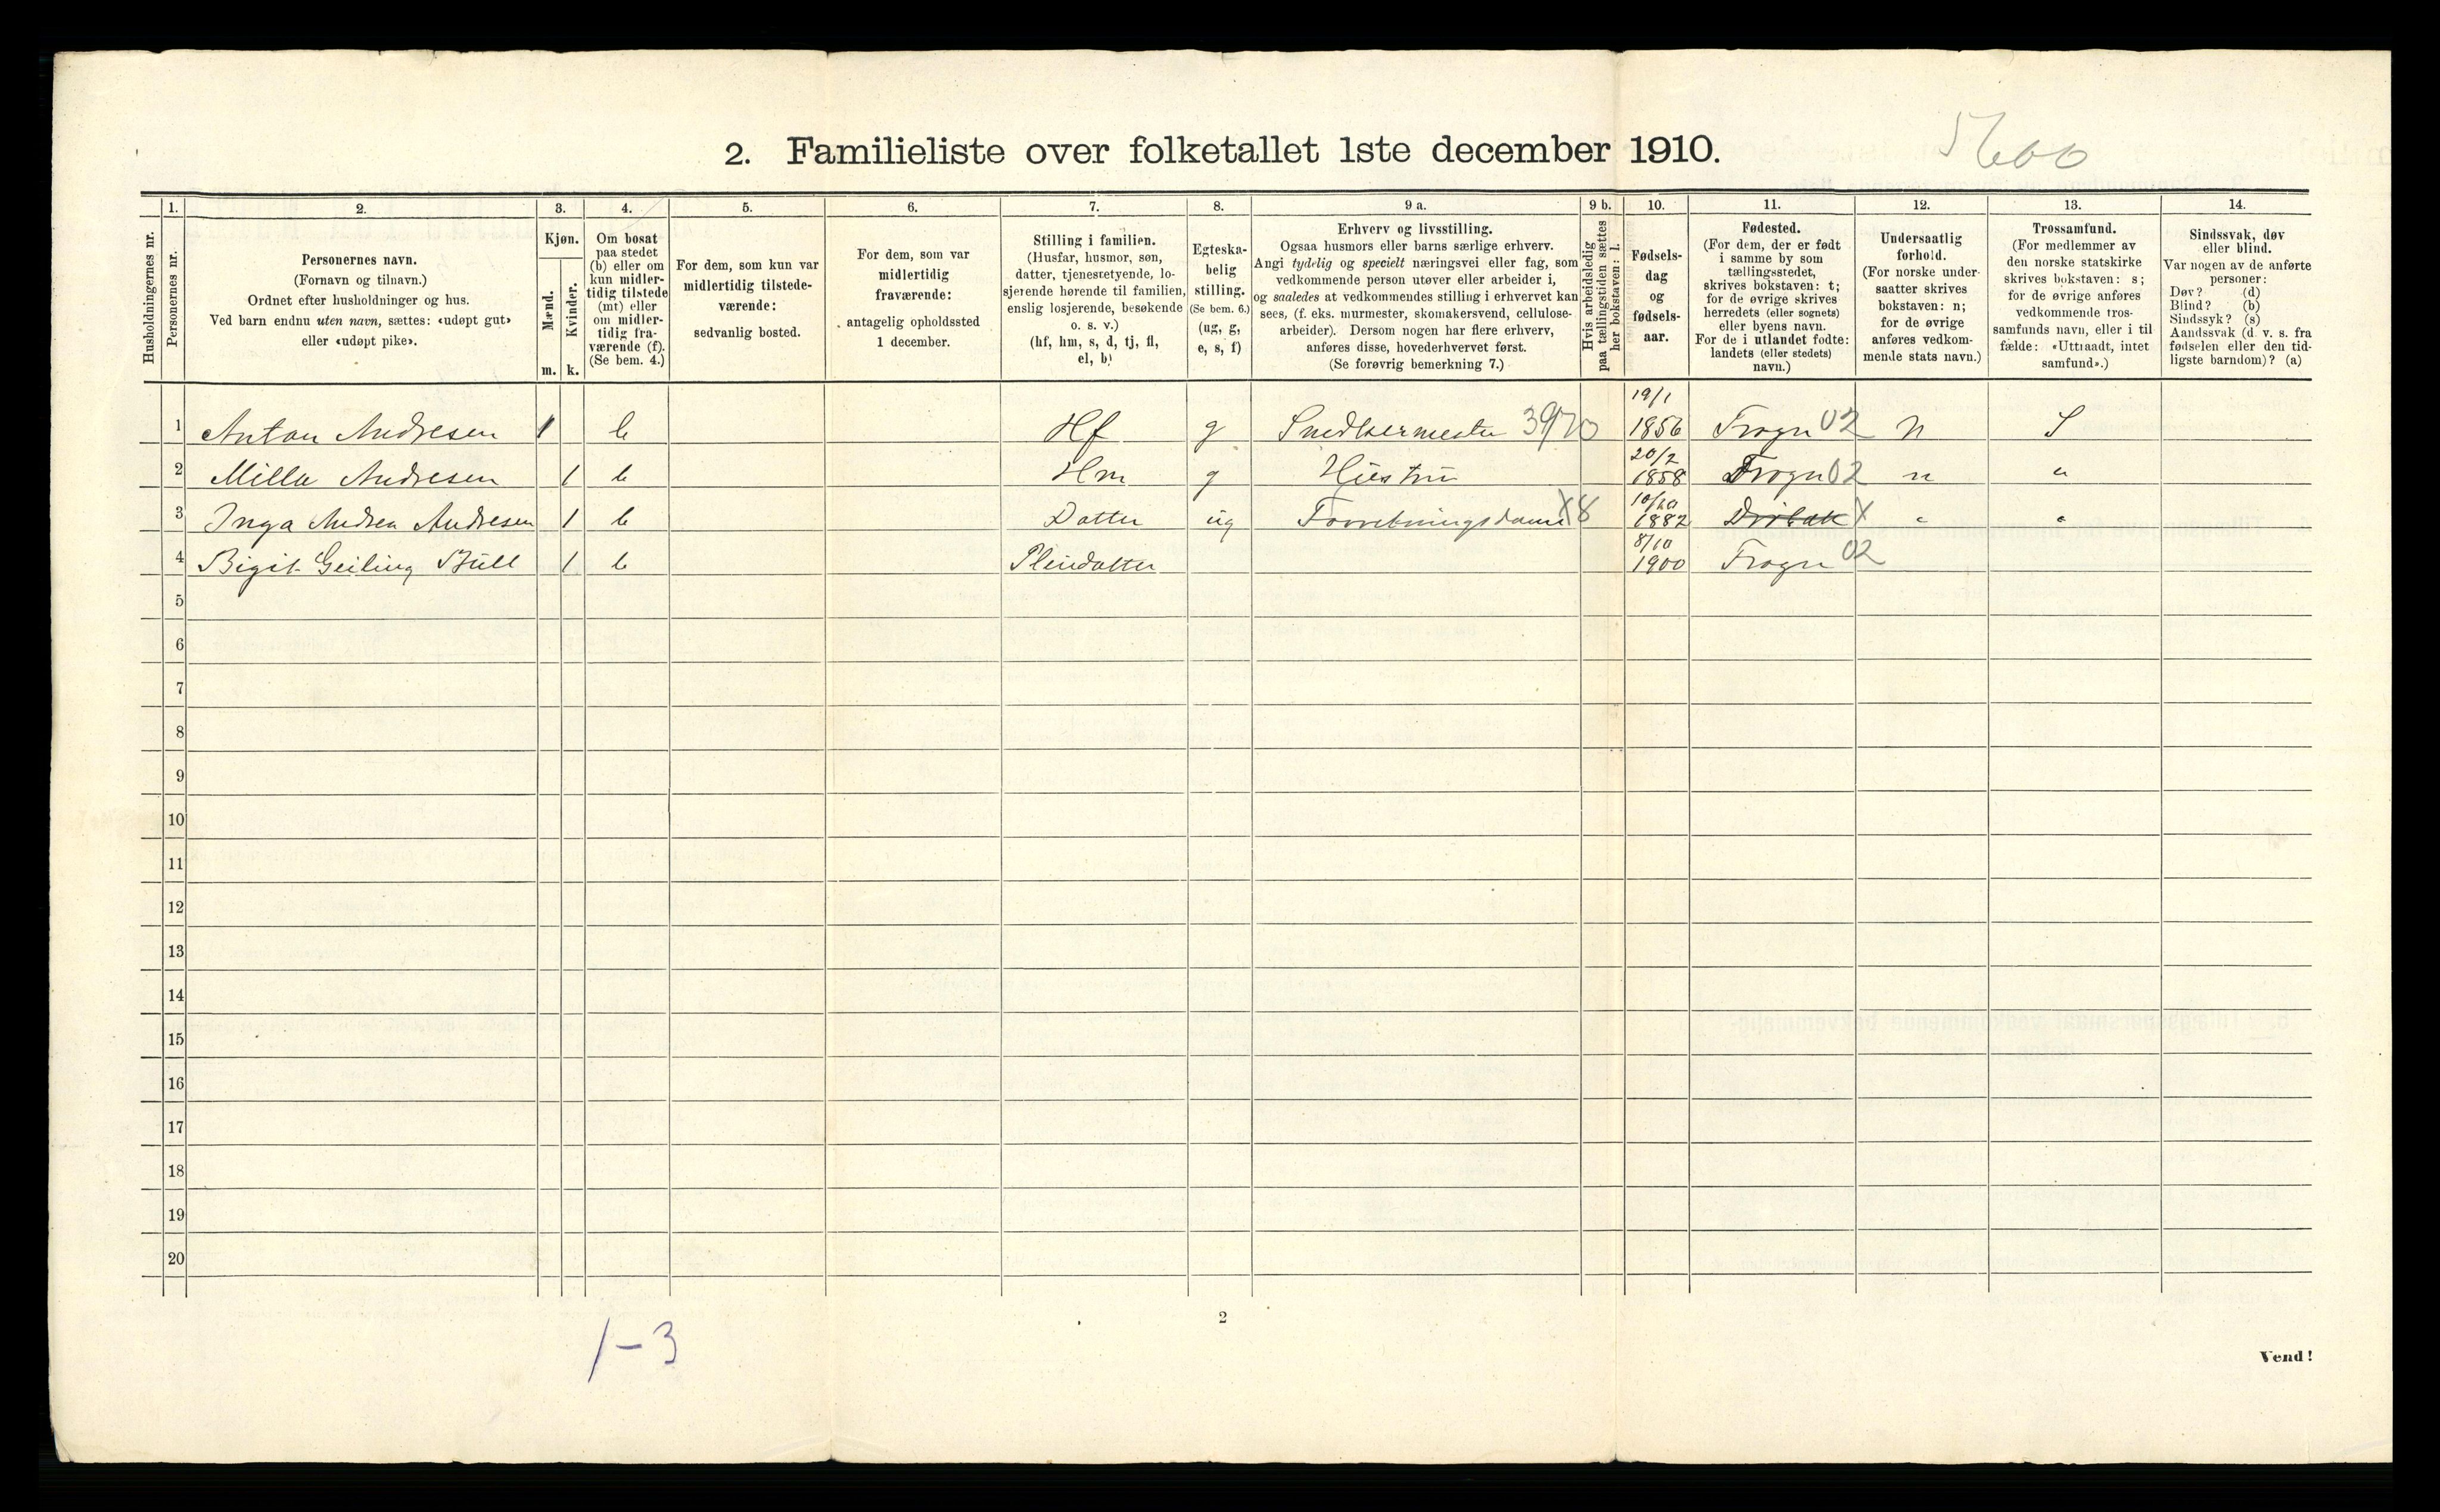 2. Familieliste over folketallet 1ste december 1910.
Husholdningernes nr.
1.
Personernes nr.
2.
Personernes navn.
(Fornavn og tilnavn.)
Ordnet efter husholdninger og hus.
Ved barn endnu uten navn, sættes: «udøpt gut»
eller «udøpt pike».
3.
Kjøn.
Mænd.
Kvinder.
m. k.
4.
Om bosat
paa stedet
(b) eller om
kun midler-
tidig tilstede
(mt) eller
om midler-
tidig fra-
værende (f).
(Se bem. 4.)
5.
For dem, som kun var
midlertidig tilstede-
værende:
sedvanlig bosted.
6.
For dem, som var
midlertidig
fraværende:
antagelig opholdssted
1 december.
7.
Stilling i familien.
(Husfar, husmor, søn,
datter, tjenestetyende, lo-
sjerende hørende til familien,
enslig losjerende, besøkende
o. s. v.)
(hf, hm, s, d, tj, fl,
el, b)
8.
Egteska-
belig
stilling.
(Se bem. 6.)
(ug, g,
e, s, f)
9 a.
Erhverv og livsstilling.
Ogsaa husmors eller barns særlige erhverv.
Angi tydelig og specielt næringsvei eller fag, som
vedkommende person utøver eller arbeider i,
og saaledes at vedkommendes stilling i erhvervet kan
sees, (f. eks. murmester, skomakersvend, cellulose-
arbeider). Dersom nogen har flere erhverv,
anføres disse, hovederhvervet først.
(Se forøvrig bemerkning 7.)
9 b.
Hvis arbeidsledig
paa tællingstiden sættes
her bokstaven: l.
10.
Fødsels-
dag
og
fødsels-
aar.
11.
Fødested.
(For dem, der er født
i samme by som
tællingsstedet,
skrives bokstaven: t;
for de øvrige skrives
herredets (eller sognets)
eller byens navn.
For de i utlandet fødte:
landets (eller stedets)
navn.)
12.
Undersaatlig
forhold.
(For norske under-
saatter skrives
bokstaven: n;
for de øvrige
anføres vedkom-
mende stats navn.)
13.
Trossamfund.
(For medlemmer av
den norske statskirke
skrives bokstaven: s;
for de øvrige anføres
vedkommende tros-
samfunds navn, eller i til-
fælde: «Uttraadt, intet
samfund».)
14.
Sindssvak, døv
eller blind.
Var nogen av de anførte
personer:
Døv? (d)
Blind? (b)
Sindssyk? (s)
Aandssvak (d. v. s. fra
fødselen eller den tid-
ligste barndom)? (a)
1 Anton Andresen 1 b Hf g Snedkermester 3970 19/1 1856 Frogn 02 n S
2 Milla Andresen 1 b Hm g Hustru 20/2 1858 Frogn 02 n "
3 Inga Andrea Andresen 1 b Datter ug Forretningsdame X8 1882 Drøbak X " "
4 Bigit Geiling Bull 1 b Pleiedatter 8/10 1900 Frogn 02
5
6
7
8
9
10
11
12
13
14
15
16
17
18
19
20
1-3
2
Vend!